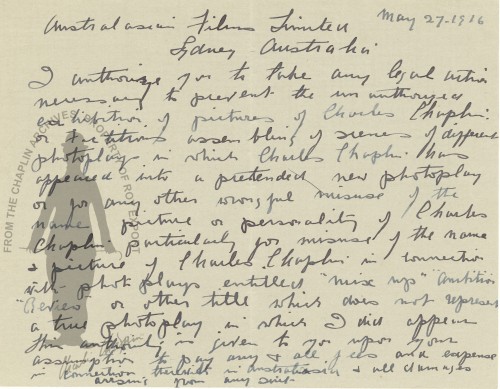 May 27-1916
Australasian Films Limited
Sydney Australia
I authorize you to take any legal action
necessary to prevent the unauthorized
exhibition of pictures of Charles Chaplin
or fictitious assembling of scenes of different
photoplays in which Charles Chaplin has
appeared into a pretended new photoplay
or for any other wrongful misuse of the
name, picture or personality of Charles
Chaplin particularly for misuse of the name
& picture of Charles Chaplin in connection
with photoplays entitled "Mix up" "Ambition"
"Review" or other title which does not represent
a true photoplay in which I did appear
This authority is given to you upon your
assumption to pay any & all fees and expense
in connection therewith in Australasia & all damages
arising from any suit
FROM THE CHAPLIN ARCHIVES PROPERTY OF ROY EXPORT